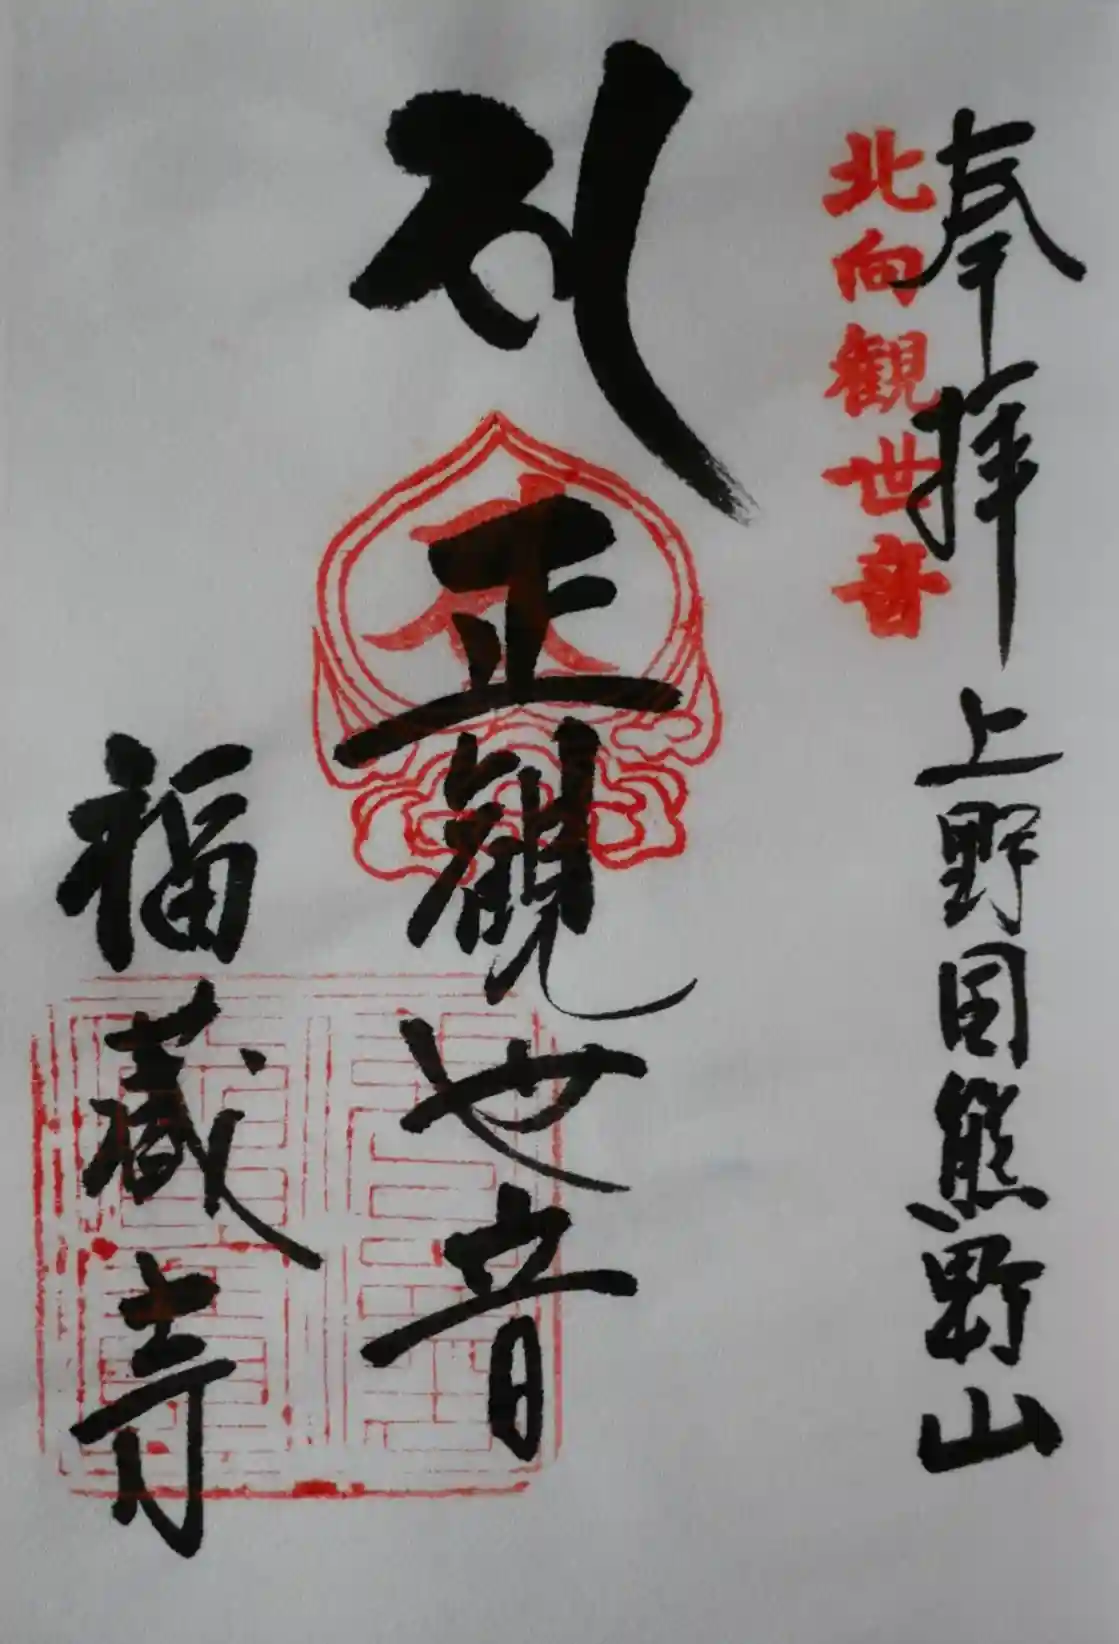 奉拝 上野国熊野山
北向観世音
正観世音
福蔵寺